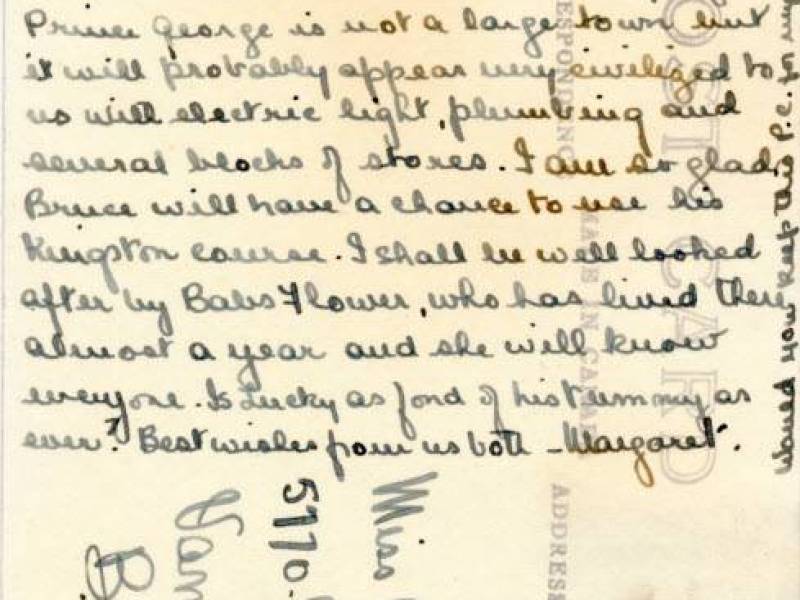 Prince George is not a large town but
it will probably appear very civilized to
us with electric light, plumbing and
several blocks of stores. I am so glad
Bruce will have a chance to use his
Kingston course. I shall be well looked
after by Babs Flower, who has lived there
almost a year and she will know
everyone. Is Lucky as fond of his tummy as
ever? Best wishes from us both - Margaret.
Would you keep this P.C. for my
Miss
5770
Van
B
POST CARD
RESPONDENCE
MADE IN CANADA
ADDRESS